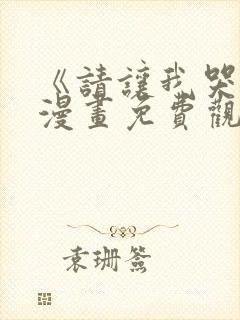 《請讓我哭
漫畫免費觀
袁珊簽